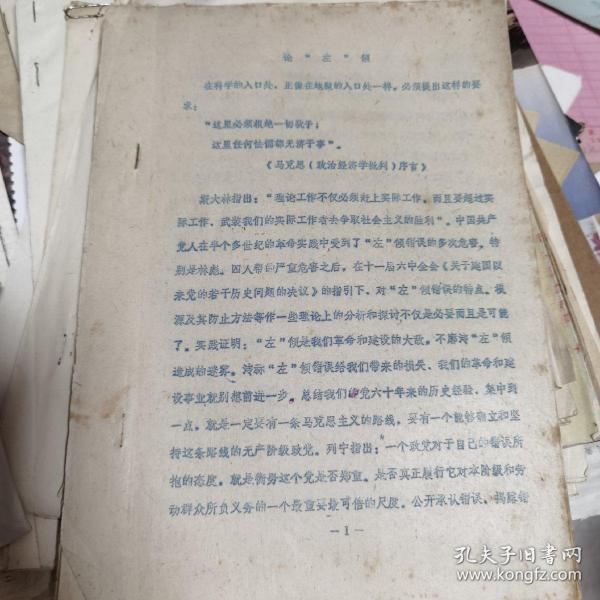 论“左”倾
在科学的入口处，正像在地狱的入口处一样，必须提出这样的要
求：
“这里必须根绝一切犹予；
这里任何怯懦都无济于事”。
《马克思（政治经济学批判）序言》
斯大林指出：“理论工作不仅必须赶上实际工作，而且要超过实
际工作，武装我们的实际工作者去争取社会主义的胜利”。中国共产
党人在半个多世纪的革命实践中受到了“左”倾错误的多次危害，特
别是林彪、四人帮的严重危害之后，在十一届六中全会《关于建国以
来党的若干历史问题的决议》的指引下，对“左”倾错误的特点、根
源及其防止方法等作一些理论上的分析和探讨不仅是必要而且是可能
了。实践证明：“左”倾是我们革命和建设的大敌。不廓清“左”倾
造成的迷雾，清除“左”倾错误给我们带来的损失，我们的革命和建
设事业就别想前进一步。总结我们的党六十年来的历史经验，集中到
一点，就是一定要有一条马克思主义的路线，要有一个能够确立和坚
持这条路线的无产阶级政党。列宁指出：“一个政党对于自己的错误所
抱的态度，就是衡量这个党是否郑重，是否真正履行它对本阶级和劳
动群众所负义务的一个最重要最可信的尺度。公开承认错误，揭露错
—1—
孔夫子旧书网
www.kongfz.com